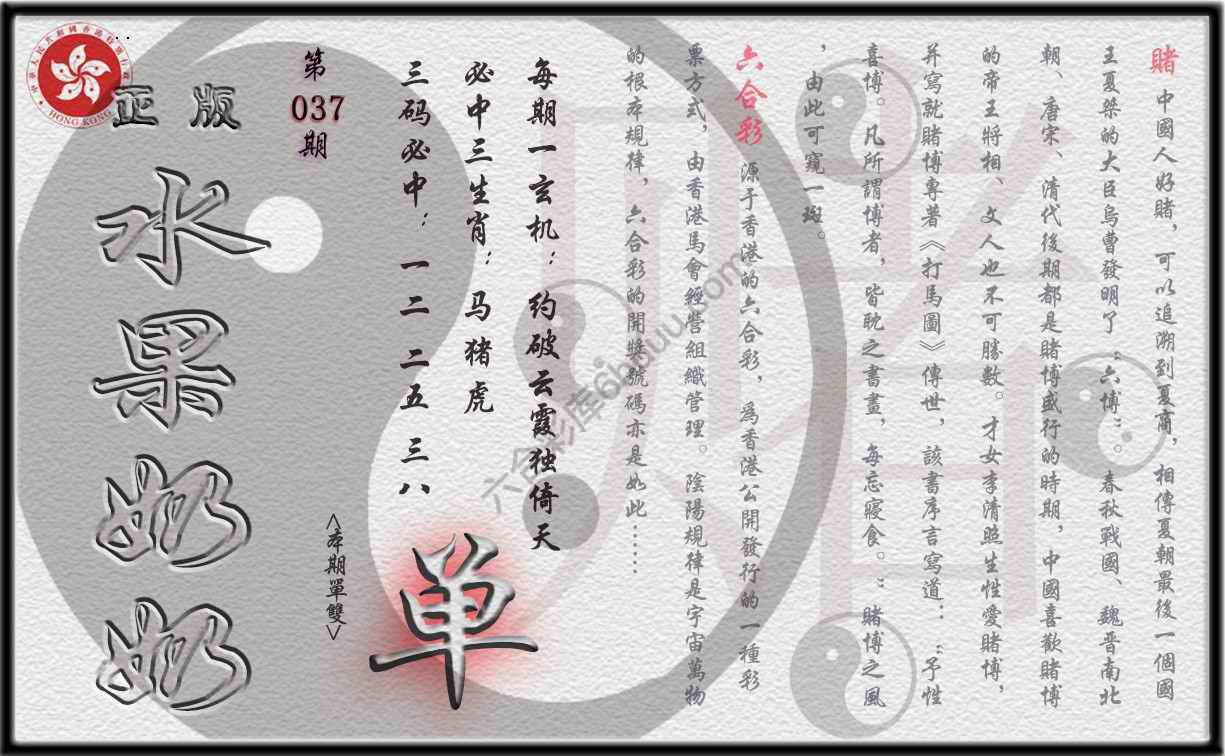 賭 中國人好賭，可以追溯到夏商，相傳夏朝最後一個國
王夏桀的大臣烏曹發明了“六博”。春秋戰國、魏晋南北
朝、唐宋、清代後期都是賭博盛行的時期，中國喜歡賭博
的帝王將相、文人也不可勝數。才女李清照生性愛賭博，
并寫就賭博專著《打馬圖》傳世，該書序言寫道：“予性
喜博。凡所謂博者，皆耽之書畫，每忘寢食。”賭博之風
，由此可窺一斑。
六合彩 源于香港的六合彩，爲香港公開發行的一種彩
票方式，由香港馬會經營組織管理。陰陽規律是宇宙萬物
的根本規律，六合彩的開獎號碼亦是如此……
每期一玄机：约破云霞独倚天
必中三生肖：马猪虎
三码必中：一二 二五 三八
第
037
期
<本期單雙>
单
正版
水果奶奶
HONG KONG
六合彩库6hduu.com